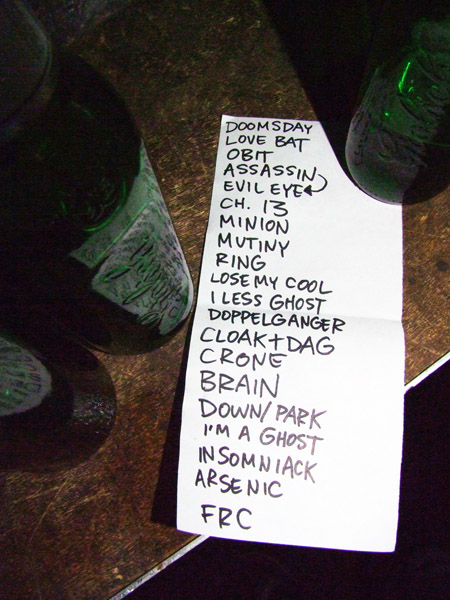 DOOMSDAY
LOVE BAT
OBIT
ASSASSIN
EVIL EYE
CH. 13
MINION
MUTINY
RING
LOSE MY COOL
1 LESS GHOST
DOPPELGANGER
CLOAK+DAG
CRONE
BRAIN
DOWN/PARK
I'M A GHOST
INSOMNIACK
ARSENIC
FRC